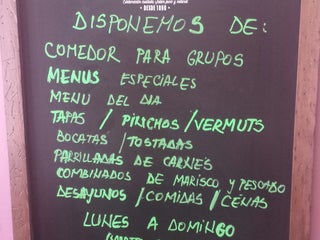 DESDE 1990
DISPONEMOS DE:
COMEDOR PARA GRUPOS
MENUS ESPECIALES
MENU DEL DIA
TAPAS / PINCHOS / VERMUTS
BOCATAS / TOSTADAS
PARRILLADAS DE CARNES
COMBINADOS DE MARISCO Y PESCADO
DESAYUNOS / COMIDAS / CENAS
LUNES A DOMINGO